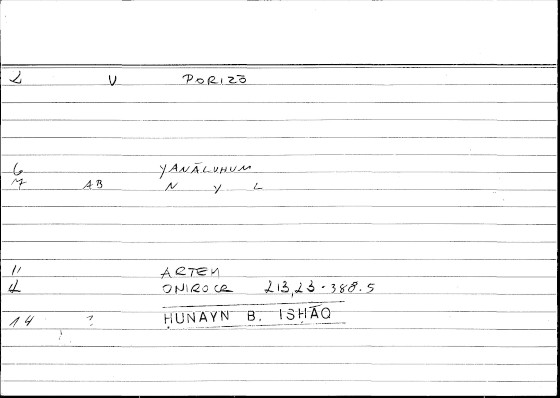 2 V PORIZŌ
6 YANĀLUHUM
7 AB N Y L
11 ARTEM
4 ONIROCR 213,23 - 388.5
14 ? ḤUNAYN B. ISḤĀQ